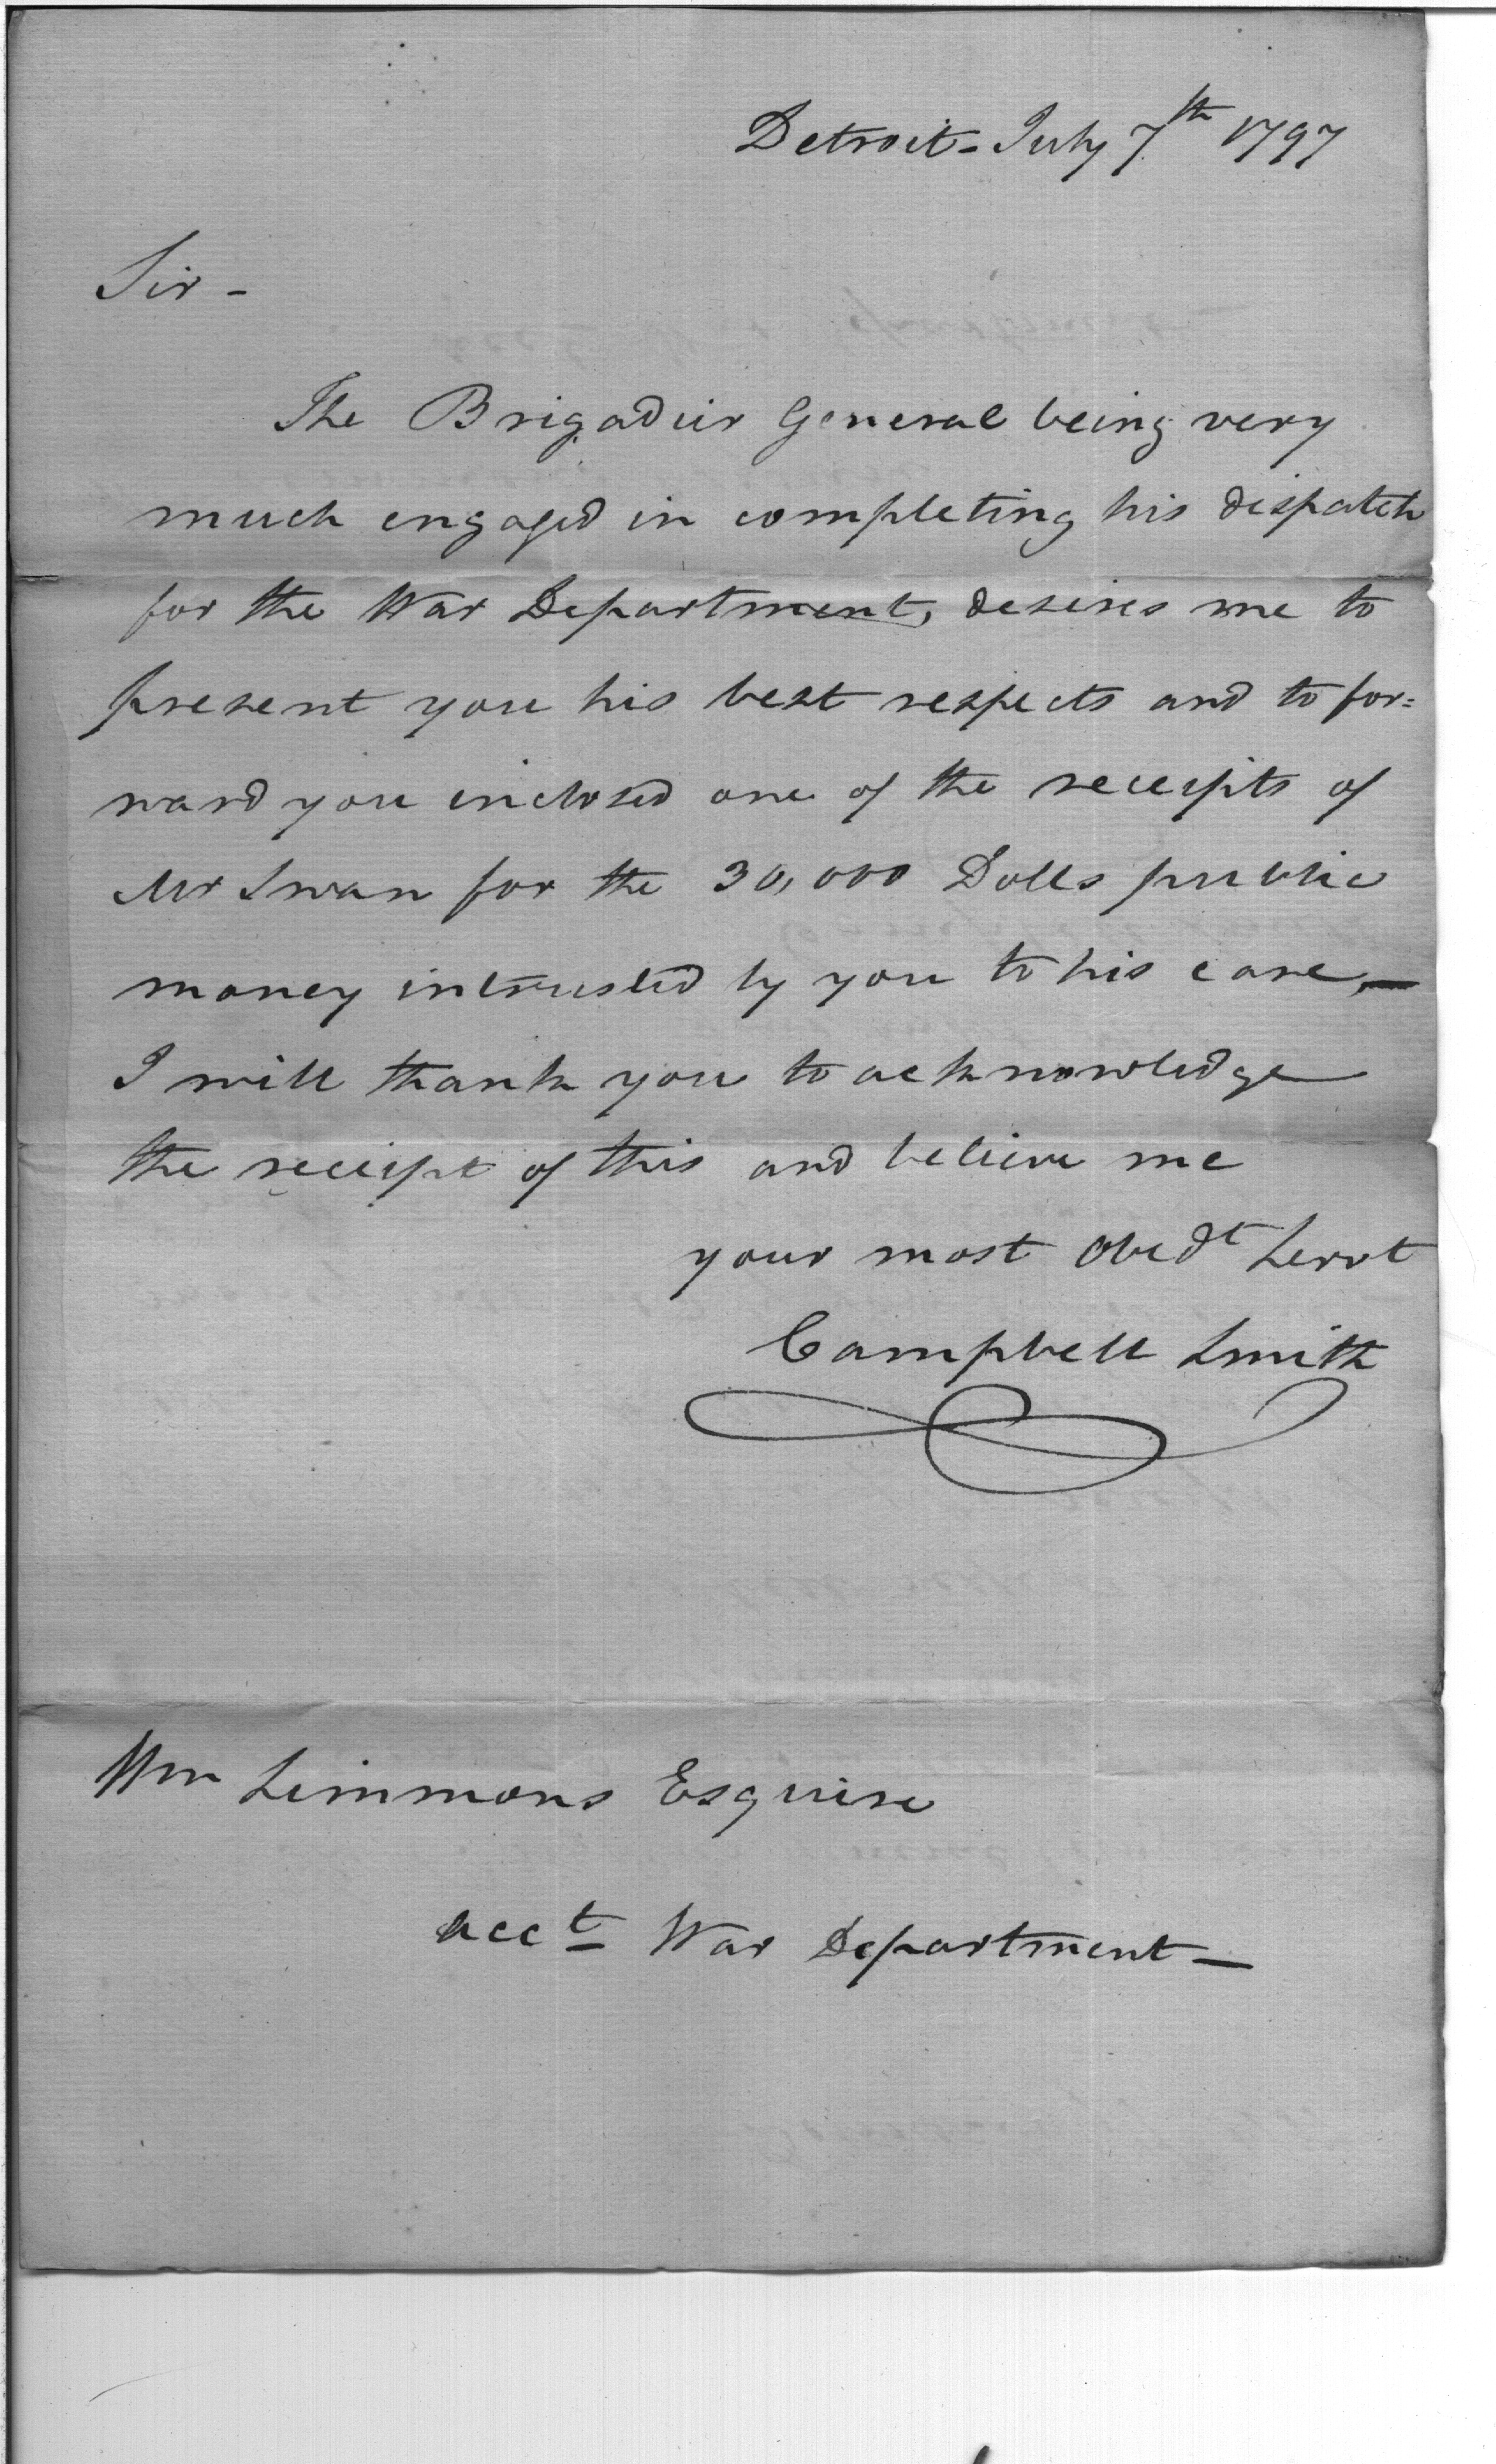 Detroit - July 7th 1797
Sir -
The Brigadier General being very
much engaged in completing his dispatch
for the War Department, desires me to
present you his best respects and to for=
ward you inclosed one of the receipts of
Mr Swan for the 30,000 Dolls public
money intrusted by you to his care, —
I will thank you to acknowledge
the receipt of this and believe me
your most Obedt Servt
Campbell Smith
Wm Simmons Esquire
Acct War Department —